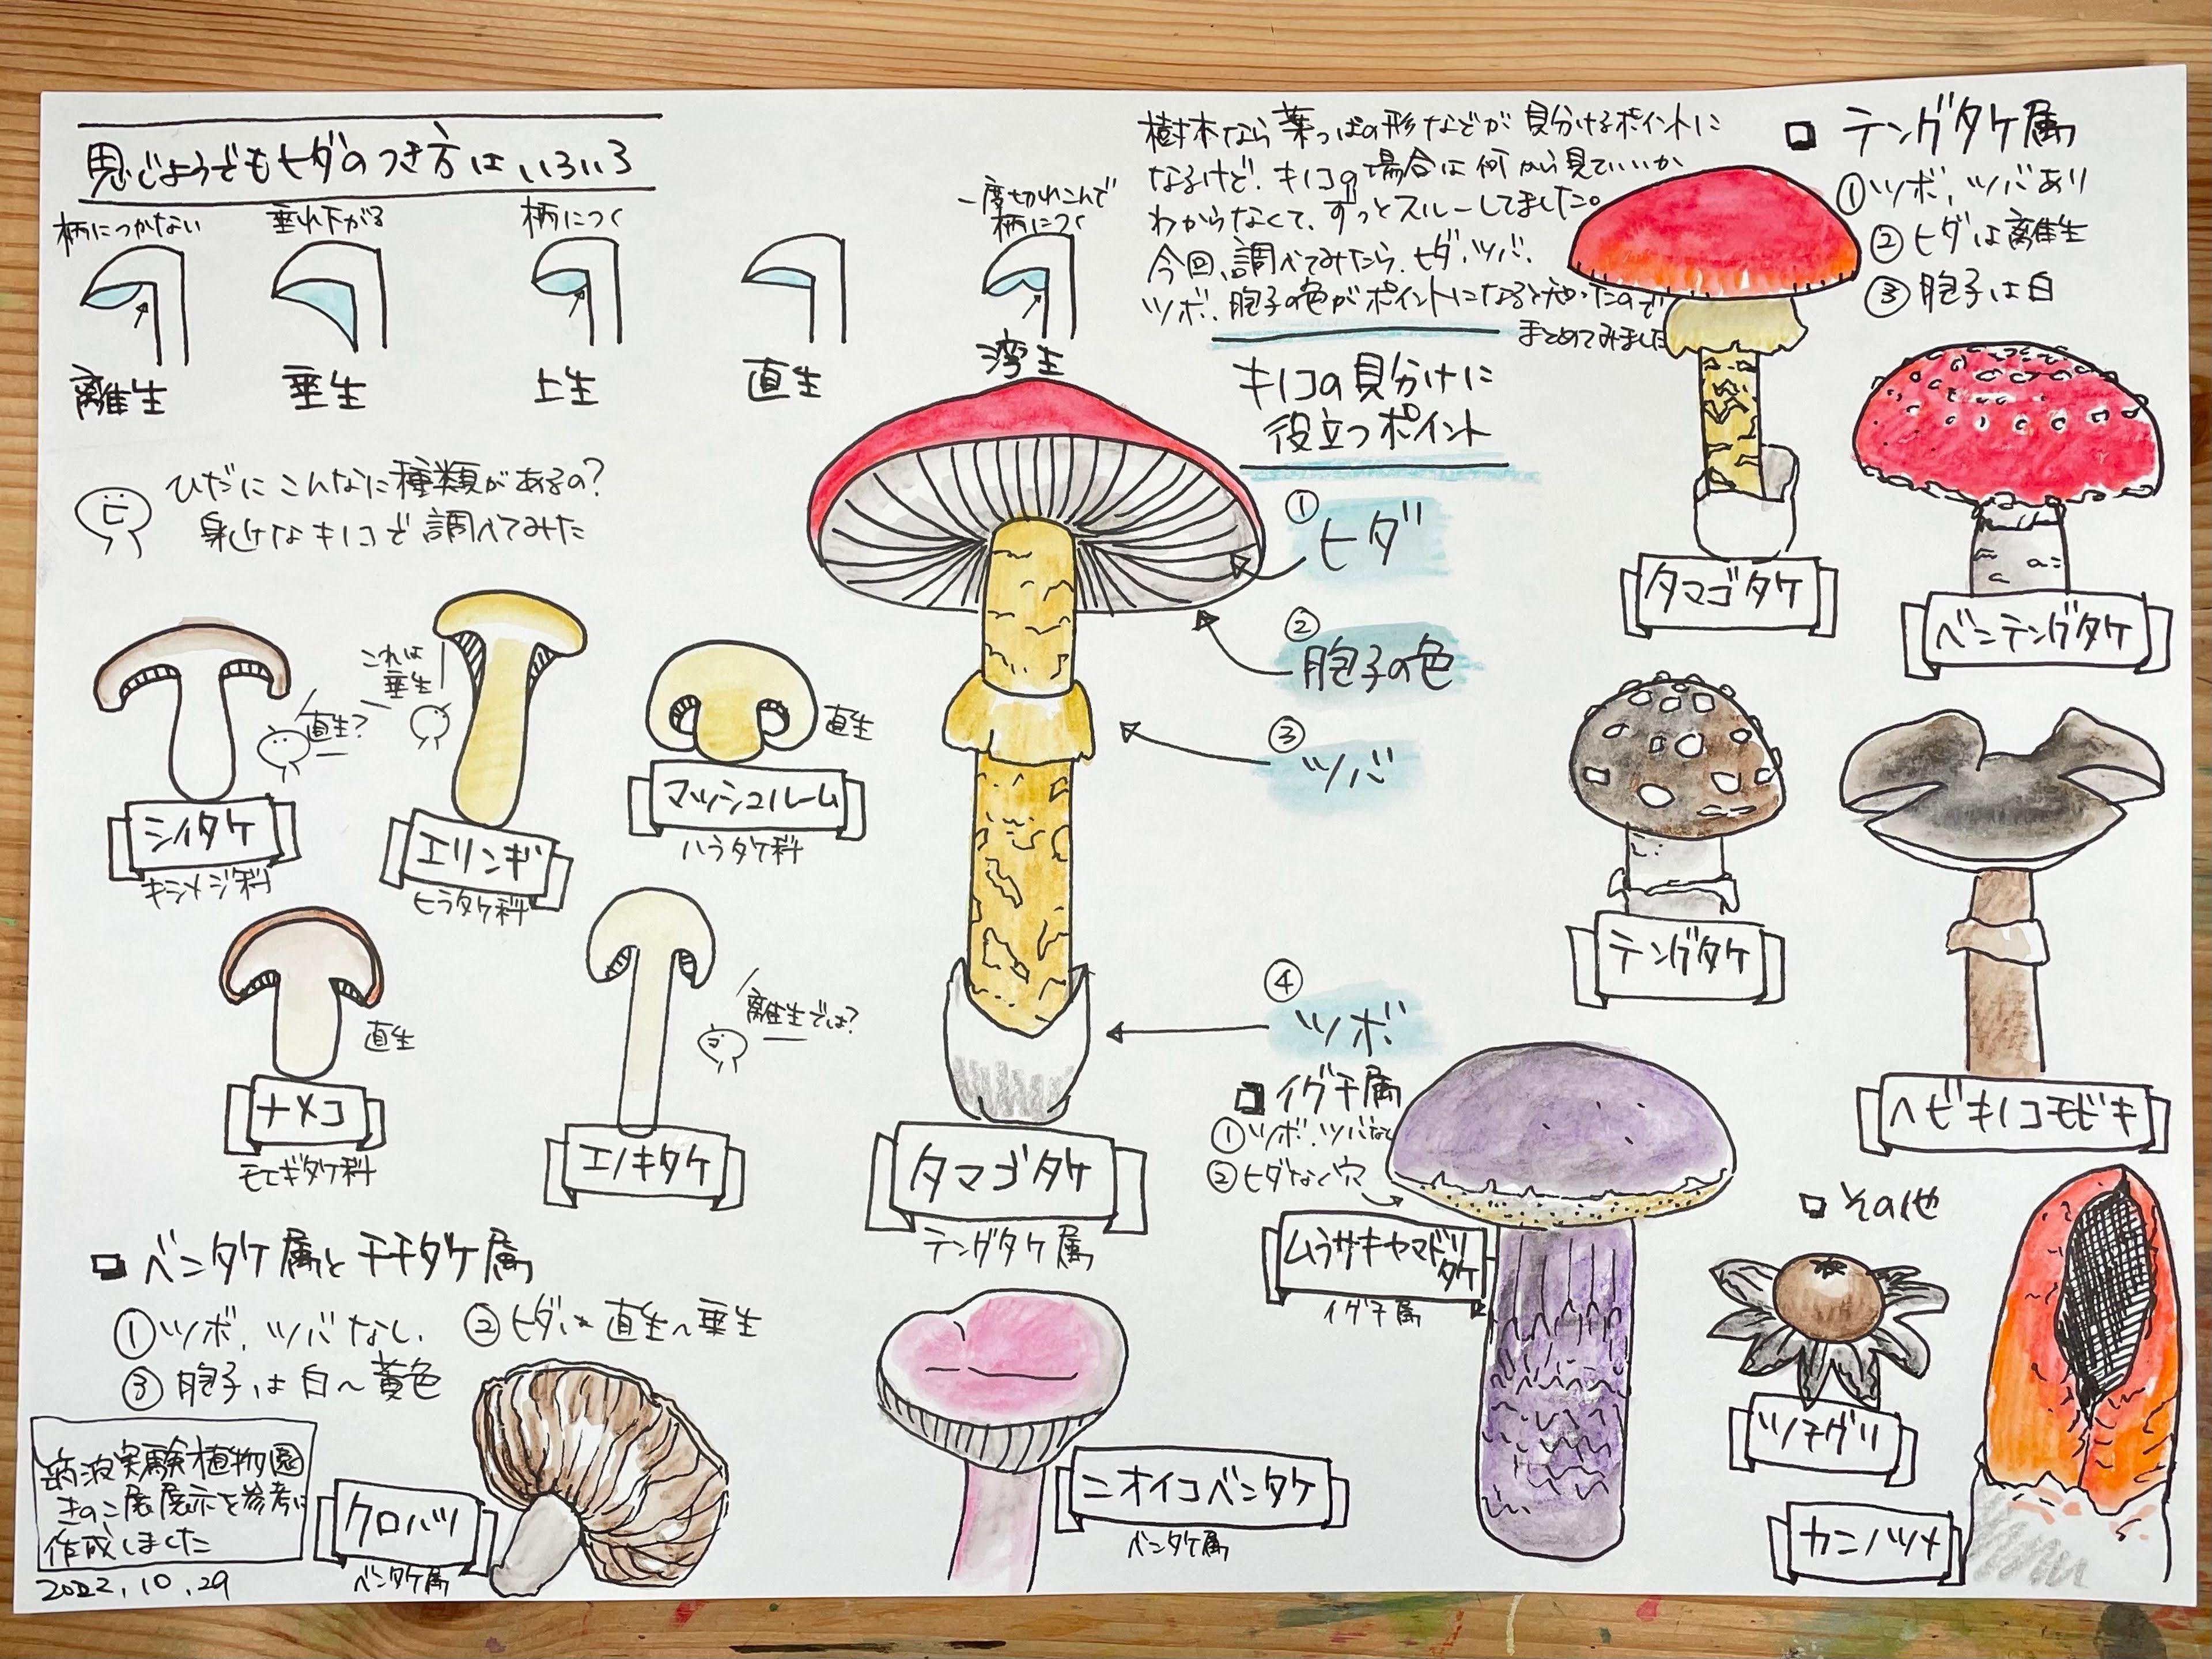 思じようでもヒダのつき方はいろいろ
柄につかない
垂れ下がる
柄につく
一度切れこんで
柄につく
離生
垂生
上生
直生
湾生
ひだにこんなに種類があるの?
身近なキノコで調べてみた
直生?
シイタケ
キシメジ科
これは
垂生
エリンギ
ヒラタケ科
直生
マッシュルーム
ハラタケ科
直生
ナメコ
モエギタケ科
離生では?
エノキタケ
樹木なら葉っぱの形などが見分けるポイントに
なるけど、キノコの場合は何から見ていいか
わからなくて、ずっとスルーしてました。
今回、調べてみたら、ヒダ、ツバ、
ツボ、胞子の色がポイントになると
まとめてみました
キノコの見分けに
役立つポイント
①ヒダ
②胞子の色
③ツバ
④ツボ
タマゴタケ
テングタケ属
テングタケ属
①ツボ、ツバあり
②ヒダは離生
③胞子は白
タマゴタケ
ベニテングタケ
テングタケ
ヘビキノコモドキ
イグチ属
①ツボ、ツバなし
②ヒダなく穴
ムラサキヤマドリ
タケ
イグチ属
その他
ツチグリ
カニノツメ
ベニタケ属とチチタケ属
①ツボ、ツバなし、
②ヒダは直生〜垂生
③胞子は白〜黄色
クロハツ
ベニタケ属
ニオイコベニタケ
ベニタケ属
筑波実験植物園
きのこ展展示を参考に
作成しました
2022.10.29